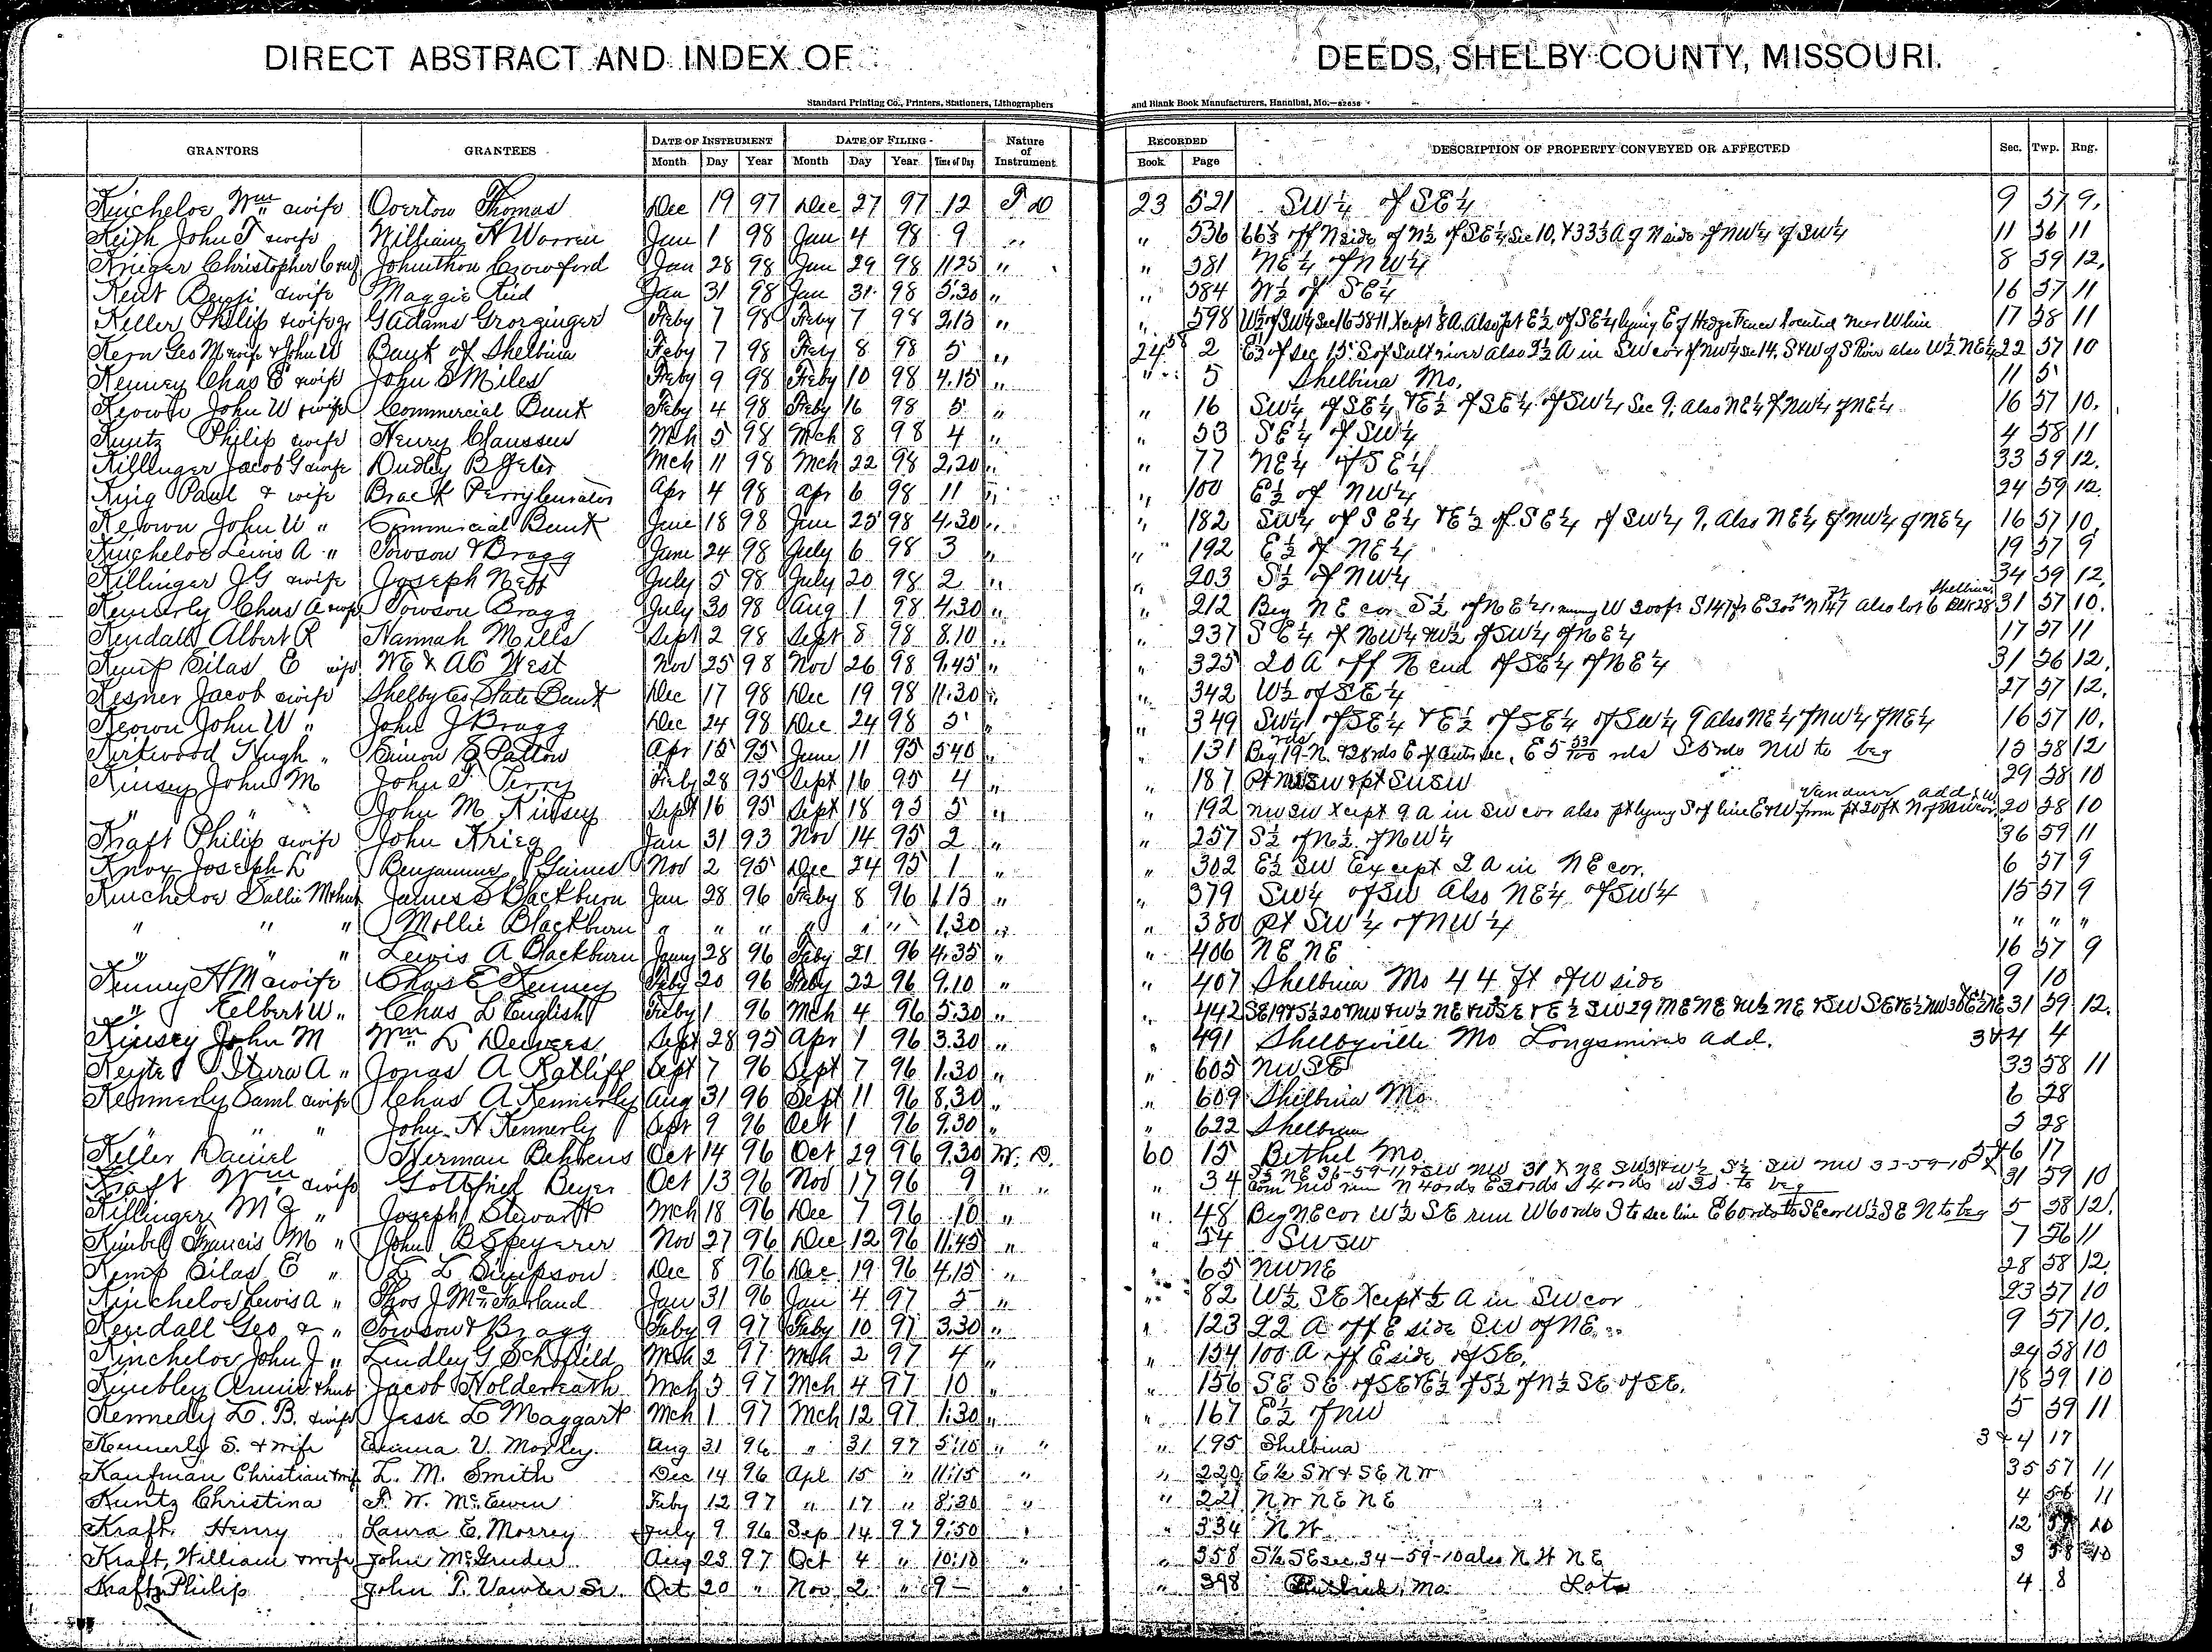 DIRECT ABSTRACT AND INDEX OF DEEDS, SHELBY COUNTY, MISSOURI.
Standard Printing Co., Printers, Stationers, Lithographers and Blank Book Manufacturers, Hannibal, Mo.—
GRANTORS GRANTEES DATE OF INSTRUMENT DATE OF FILING Nature of Instrument RECORDED DESCRIPTION OF PROPERTY CONVEYED OR AFFECTED Sec. Twp. Rng.
Month Day Year Month Day Year Time of Day Book Page
Kincheloe Wm wife Overton Thomas Dec 19 97 Dec 27 97 12 T D 23 521 SW¼ of SE¼ 9 57 9.
Keigh John T wife William H Warren Jan 1 98 Jan 4 98 9 " " 536 66⅔ off N side of N½ of SE¼ Sec 10, & 33⅓ A of N side of NW¼ of SW¼ 11 56 11
Krieger Christopher Johnithon Crowford Jan 28 98 Jan 29 98 1125 " " 581 NE¼ of NW¼ 8 59 12.
Kent Benj wife Maggie Jan 31 98 Jan 31 98 5.30 " " 584 W½ of SE¼ 16 57 11
Keller Philip & wife G Adams Grorzinger Feby 7 98 Feby 7 98 2.15 " " 598 W½ of SW¼ Sec 16-58-11 Xcept 8A. Also pt E½ of SE¼ lying E of Hedge Fence located near W line 17 58 11
Kern Geo M wife & John W Bank of Shelbina Feby 7 98 Feby 8 98 5 " 24 2 E½ of Sec 15 S of Salt river also 2½ A in SW cor of NW¼ Sec 14, S & W of S River also W½ NE¼ 22 57 10
Kenney Chas E wife John S Miles Feby 9 98 Feby 10 98 4.15 " " 5 Shelbina Mo. 11 5
Keown John W & wife Commercial Bank Feby 4 98 Feby 16 98 5 " " 16 SW¼ of SE¼ & E½ of SE¼ of SW¼ Sec 9, also NE¼ of NW¼ of NE¼ 16 57 10.
Kuntz Philip wife Henry Claussen Mch 5 98 Mch 8 98 4 " " 53 SE¼ of SW¼ 4 58 11
Killinger Jacob G wife Dudley B Jeter Mch 11 98 Mch 22 98 2.20 " " 77 NE¼ of SE¼ 33 59 12.
King Paul & wife Perry Curator Apr 4 98 Apr 6 98 11 " " 100 E½ of NW¼ 24 59 12.
Keown John W " Commercial Bank June 18 98 June 25 98 4.30 " " 182 SW¼ of SE¼ & E½ of SE¼ of SW¼ 9, also NE¼ of NW¼ of NE¼ 16 57 10.
Kincheloe Lewis A " Towson & Bragg June 24 98 July 6 98 3 " " 192 E½ of NE¼ 19 57 9
Killinger J G wife Joseph Neff July 5 98 July 20 98 2 " " 203 S½ of NW¼ 34 59 12.
Kennerly Chas A & wife Towson Bragg July 30 98 Aug 1 98 4.30 " " 212 Beg NE cor S½ of NE¼, runing W 200ft S 147ft E 200ft N 147 also lot 6 Blk 28 Shelbina 31 57 10.
Kendall Albert R Hannah Mills Sept 2 98 Sept 8 98 8.10 " " 237 SE¼ of NW¼ W½ of SW¼ of NE¼ 17 57 11
Kemp Silas E wife WE & AC West Nov 25 98 Nov 26 98 9.45 " " 325 20 A off N end of SE¼ of NE¼ 31 56 12.
Kesner Jacob wife Shelby Co State Bank Dec 17 98 Dec 19 98 11.30 " " 342 W½ of SE¼ 27 57 12.
Keown John W " John J Bragg Dec 24 98 Dec 24 98 5 " " 349 SW¼ of SE¼ & E½ of SE¼ of SW¼ 9 also NE¼ of NW¼ of NE¼ 16 57 10.
Kirkwood Hugh " Simon S Patton Apr 15 95 June 11 95 540 " " 131 Beg 19 rds N & 28 rds E of Center Sec, E 5 53/100 rds S 5 rds NW to beg 15 58 12
Kinsey John M John T Perry Feby 28 95 Sept 16 95 4 " " 187 Pt NWSW & pt SWSW 29 58 10
" " John M Kinsey Sept 16 95 Sept 18 95 5 " " 192 NW SW Xcept 9 A in SW cor also pt lying S of line E & W from pt 20ft N of SW cor 20 58 10
Kraft Philip wife John Krieg Jan 31 93 Nov 14 95 2 " " 257 S½ of N½ of NW¼ 36 59 11
Knox Joseph L Benjamine J Gaines Nov 2 95 Dec 24 95 1 " " 302 E½ SW Except 2 A in NE cor. 6 57 9
Kincheloe Sallie M & hus James S Blackburn Jan 28 96 Feby 8 96 1.15 " " 379 SW¼ of SW Also NE¼ of SW¼ 15 57 9
" " " Mollie Blackburn " " " " " " 1.30 " " 380 Pt SW¼ of NW¼ " " "
" " " Lewis A Blackburn Jany 28 96 Feby 21 96 4.35 " " 406 NE NE 16 57 9
Kenney H M & wife Chas E Kenney Feby 20 96 Feby 22 96 9.10 " " 407 Shelbina Mo 44 ft of W side 9 10
" Elbert W " Chas L English Feby 1 96 Mch 4 96 5.30 " " 442 31 59 12.
Kinsey John M Wm L Sept 28 95 Apr 1 96 3.30 " " 491 Shelbyville Mo Longsmires add. 3&4 4
Keyte Itura A " Jonas A Ratliff Sept 7 96 Sept 7 96 1.30 " " 605 NW SE 33 58 11
Kennerly Saml wife Chas A Kennerly Aug 31 96 Sept 11 96 8.30 " " 609 Shelbina Mo 6 28
" " " John H Kennerly Sept 9 96 Oct 1 96 9.30 " " 622 Shelbina 5 28
Keller Daniel Herman Behrens Oct 14 96 Oct 29 96 9.30 W. D. 60 15 Bethel Mo 5&6 17
Kraft Wm wife Gottfried Beyer Oct 13 96 Nov 17 96 9 " " " 34 S½ NE 36-59-11 & SW NW 31 & NE SW 31 & W½ S½ SW NW 32-59-10 31 59 10
Com NW run N 40rds E 20rds S 40rds W 20 to beg
Killinger M G " Joseph Stewart Mch 18 96 Dec 7 96 10 " " 48 Beg NE cor W½ SE run W 60 rds S to sec line E 60 rds to SE cor W½ SE N to beg 5 58 12.
Kimbel Francis M " John B Speyerer Nov 27 96 Dec 12 96 11.45 " " 54 SWSW 7 56 11
Kemp Silas E " L L Simpson Dec 8 96 Dec 19 96 4.15 " " 65 NWNE 28 58 12.
Kincheloe Lewis A " Thos J McFarland Jan 31 96 Jan 4 97 5 " " 82 W½ SE Xcept ½ A in SW cor 23 57 10
Kendall Geo & " Towson & Bragg Feby 9 97 Feby 10 97 3.30 " " 123 22 A off E side SW of NE 9 57 10.
Kincheloe John J " Lindley G Schofield Mch 2 97 Mch 2 97 4 " " 154 100 A off E side of SE. 24 58 10
Kimbley Annie & hus Jacob Holderreath Mch 3 97 Mch 4 97 10 " " 156 SE SE of SE & E½ of S½ of N½ SE of SE. 18 59 10
Kennedy L. B. wife Jesse L Maggart Mch 1 97 Mch 12 97 1.30 " " 167 E½ of NW 5 59 11
Kennerly S. & wife Emma V. Morley. Aug 31 96 " 31 97 5:10 " " " 195 Shelbina 3&4 17
Kaufman Christian & wife L. M. Smith Dec 14 96 Apl 15 " 11:15 " " 220 E½ SW & SE NW 35 57 11
Kuntz Christina F. W. McEwen Feby 12 97 " 17 " 8:30 " " 221 NW NE NE 4 11
Kraft. Henry Laura E. Morrey July 9 96 Sep 14 97 9:50 " " 334 NW 12 10
Kraft, William & wife John McGruder Aug 23 97 Oct 4 " 10:10 " " 358 S½ SE sec. 34-59-10 also NW NE 3 58 10
Kraft, Philip John T. Vawter Sr. Oct 20 " Nov 2 " 9- " " 398 Mo. Lots 4 8